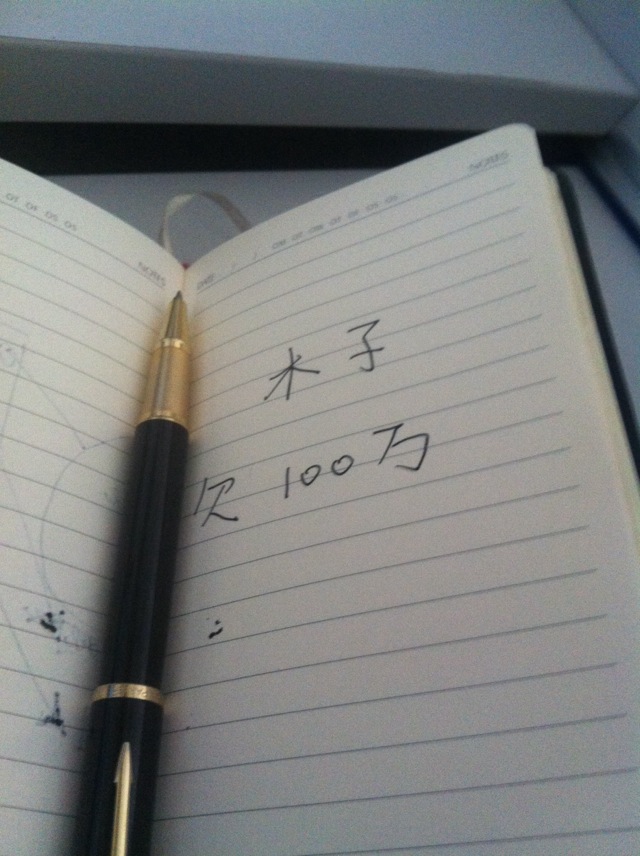 NOTES
NOTES
DATE / /
木子
欠100万